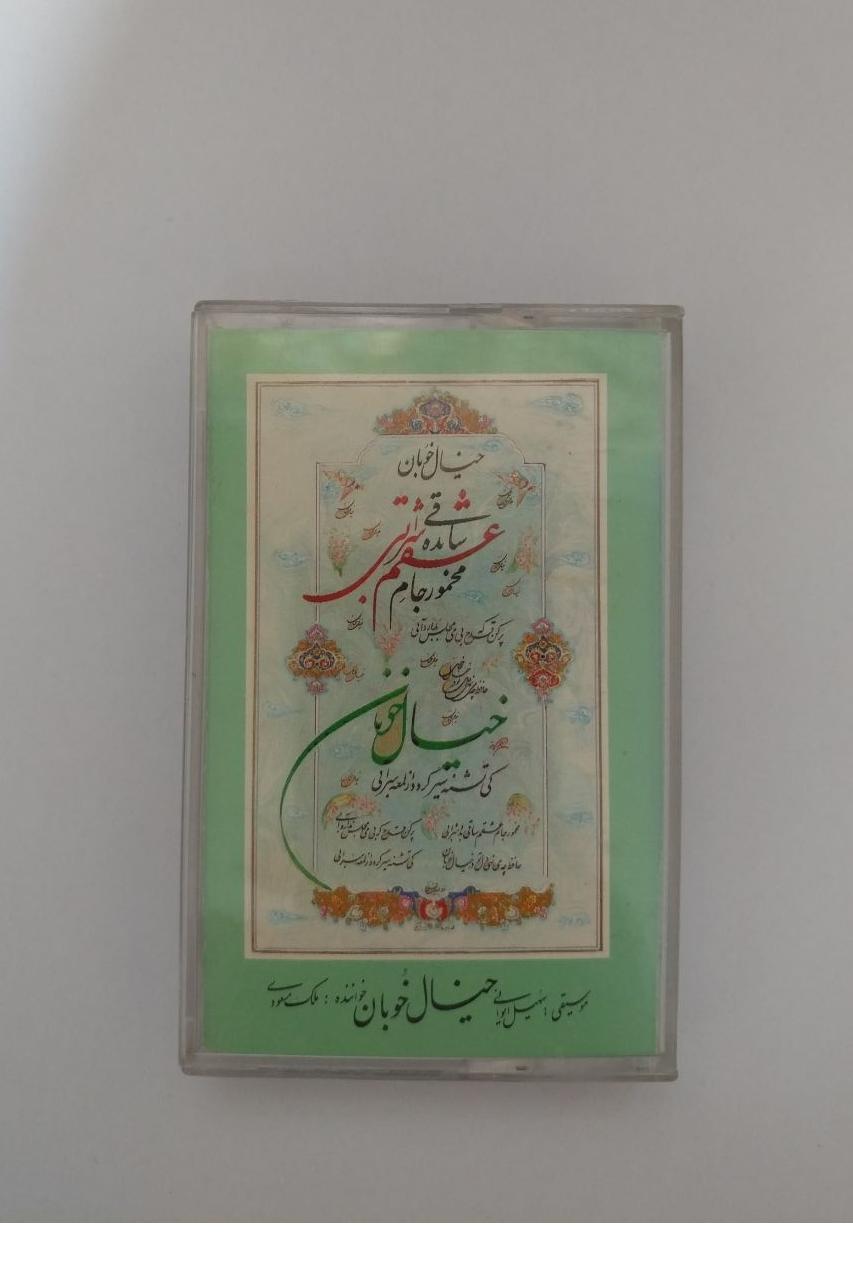 خیال خوبان
ساقی بده
شرابی
عشقم
مخمور جام
پر کن قدح که بی می مجلس ندارد آبی
خیال خوبان
کی تشنه سیر گردد از لمعه سرابی
مخمور جام عشقم ساقی بده شرابی
پر کن قدح که بی می مجلس ندارد آبی
حافظ چه می نهی دل تو در خیال خوبان
کی تشنه سیر گردد از لمعه سرابی
موسیقی: سهیل ایوانی خیال خوبان خواننده: ملک مسعودی